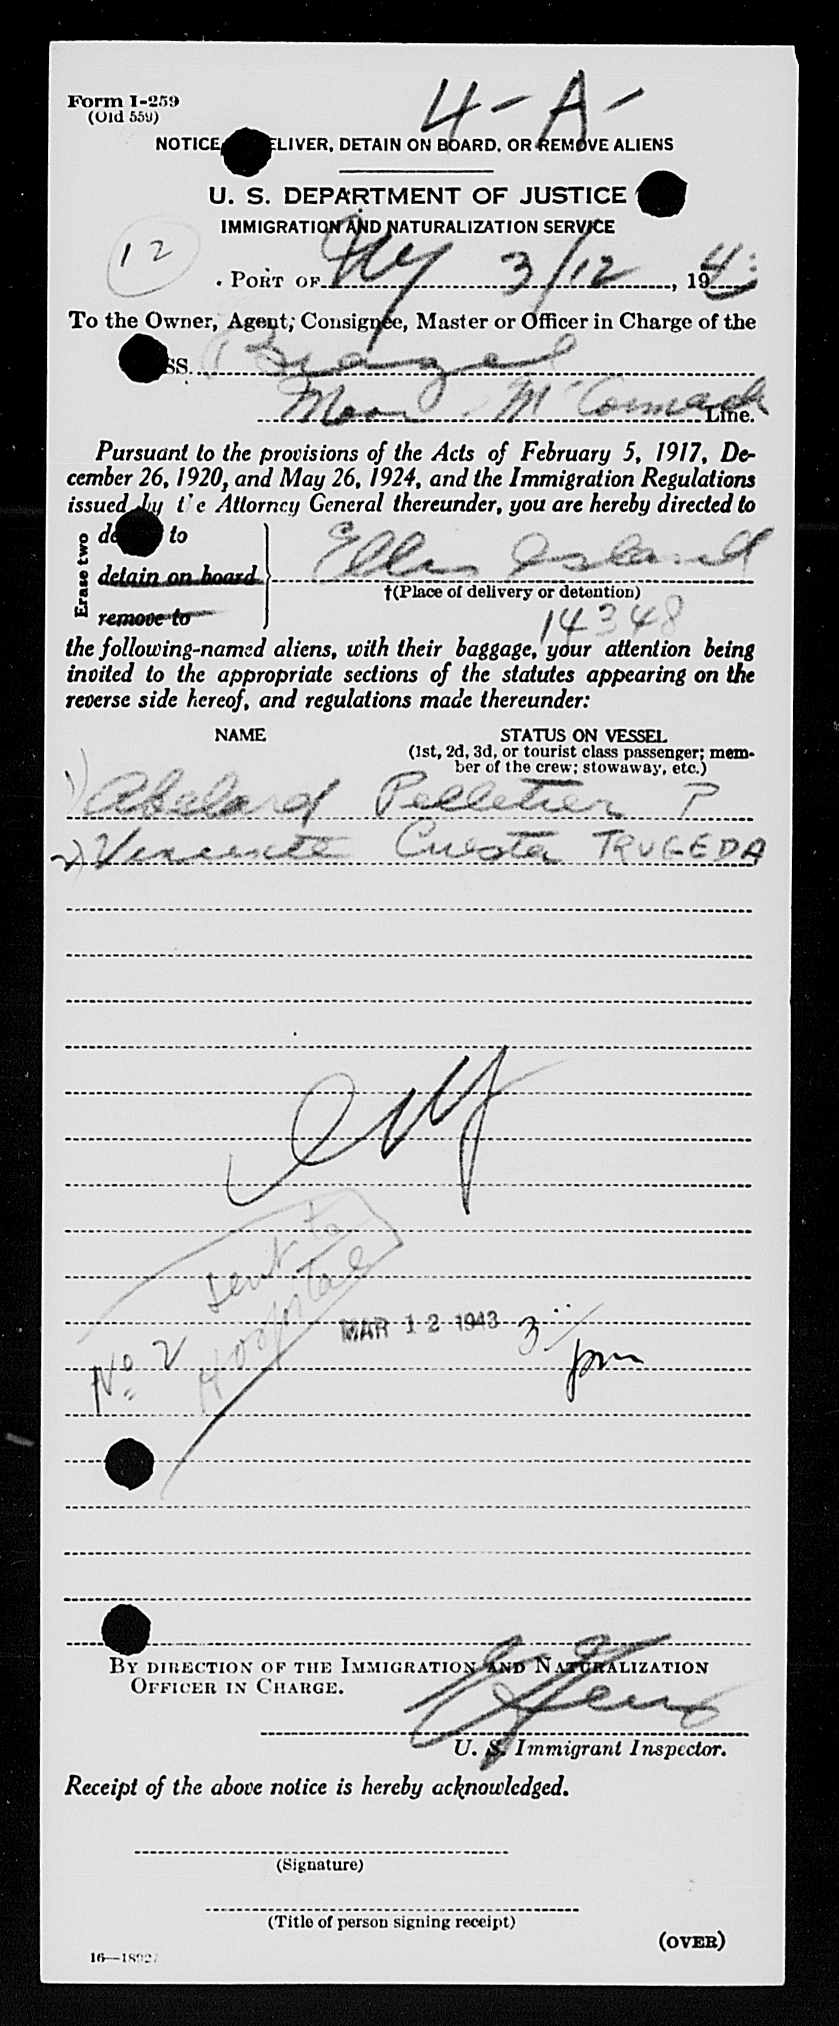 Form I-259
(Old 559)
4-A-
NOTICE ELIVER, DETAIN ON BOARD, OR REMOVE ALIENS
U. S. DEPARTMENT OF JUSTICE
IMMIGRATION AND NATURALIZATION SERVICE
12
PORT OF NY 3/12, 194
To the Owner, Agent, Consignee, Master or Officer in Charge of the
SS. Brazil
Moore McCormack Line.
Pursuant to the provisions of the Acts of February 5, 1917, De-
cember 26, 1920, and May 26, 1924, and the Immigration Regulations
issued by t e Attorney General thereunder, you are hereby directed to
Erase two
de to
detain on board
remove to
Ellis Island
†(Place of delivery or detention)
14348
the following-named aliens, with their baggage, your attention being
invited to the appropriate sections of the statutes appearing on the
reverse side hereof, and regulations made thereunder:
NAME
STATUS ON VESSEL
(1st, 2d, 3d, or tourist class passenger; mem-
ber of the crew; stowaway, etc.)
1) Abelard Pelletier P
2) Vincente Cuesta TRUGEDA
sent to
Hospital
No 2
MAR 12 1943 3 pm
BY DIRECTION OF THE IMMIGRATION AND NATURALIZATION
OFFICER IN CHARGE.
U. S. Immigrant Inspector.
Receipt of the above notice is hereby acknowledged.
(Signature)
(Title of person signing receipt)
(OVER)
16—18927